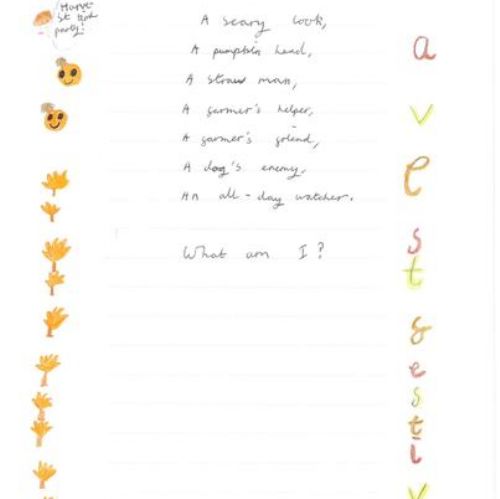 party!
A scary look,
A pumpkin head,
A straw man,
A farmer's helper,
A farmer's friend,
A dog's enemy,
An all-day watcher.
What am I?
a
v
e
s
t
f
e
s
t
i
v